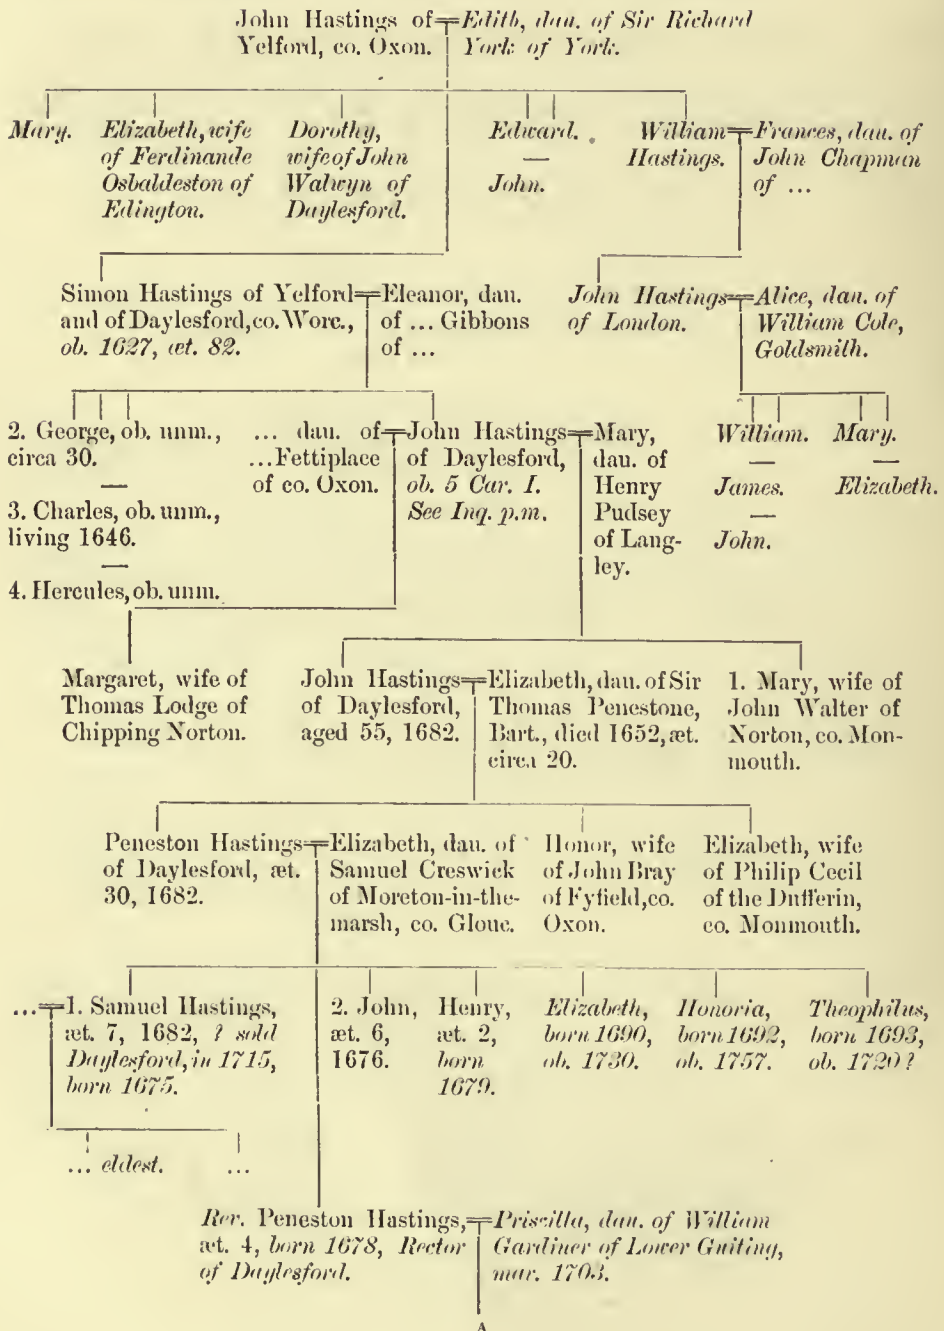 John Hastings of Edith, dau. of Sir Richard
Yelford, co. Oxon. York of York.
Mary.
Elizabeth, wife
of Ferdinande
Osbaldeston of
Edington.
Dorothy,
wife of John
Walwyn of
Daylesford.
Edward.
—
John.
William
Hastings.
Frances, dau. of
John Chapman
of ...
Simon Hastings of Yelford
and of Daylesford, co. Worc.,
ob. 1627, æt. 82.
Eleanor, dau.
of ... Gibbons
of ...
John Hastings
of London.
Alice, dau. of
William Cole,
Goldsmith.
2. George, ob. unm.,
circa 30.
—
3. Charles, ob. unm.,
living 1646.
—
4. Hercules, ob. unm.
... dau. of
...Fettiplace
of co. Oxon.
John Hastings
of Daylesford,
ob. 5 Car. I.
See Inq. p.m.
Mary,
dau. of
Henry
Pudsey
of Lang-
ley.
William.
—
James.
—
John.
Mary.
—
Elizabeth.
Margaret, wife of
Thomas Lodge of
Chipping Norton.
John Hastings
of Daylesford,
aged 55, 1682.
Elizabeth, dau. of Sir
Thomas Penestone,
Bart., died 1652, æt.
circa 20.
1. Mary, wife of
John Walter of
Norton, co. Mon-
mouth.
Peneston Hastings
of Daylesford, æt.
30, 1682.
Elizabeth, dau. of
Samuel Creswick
of Moreton-in-the-
marsh, co. Glouc.
Honor, wife
of John Bray
of Fyfield, co.
Oxon.
Elizabeth, wife
of Philip Cecil
of the Dufferin,
co. Monmouth.
...
1. Samuel Hastings,
æt. 7, 1682, ? sold
Daylesford, in 1715,
born 1675.
2. John,
æt. 6,
1676.
Henry,
æt. 2,
born
1679.
Elizabeth,
born 1690,
ob. 1730.
Honoria,
born 1692,
ob. 1757.
Theophilus,
born 1693,
ob. 1720?
... eldest. ...
Rev. Peneston Hastings,
æt. 4, born 1678, Rector
of Daylesford.
Priscilla, dau. of William
Gardiner of Lower Guiting,
mar. 1703.
A